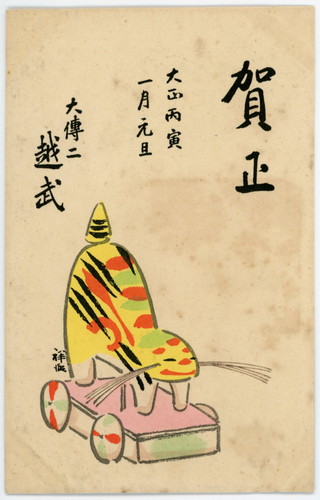 賀正
大正丙寅
一月元旦
大傳二
越武